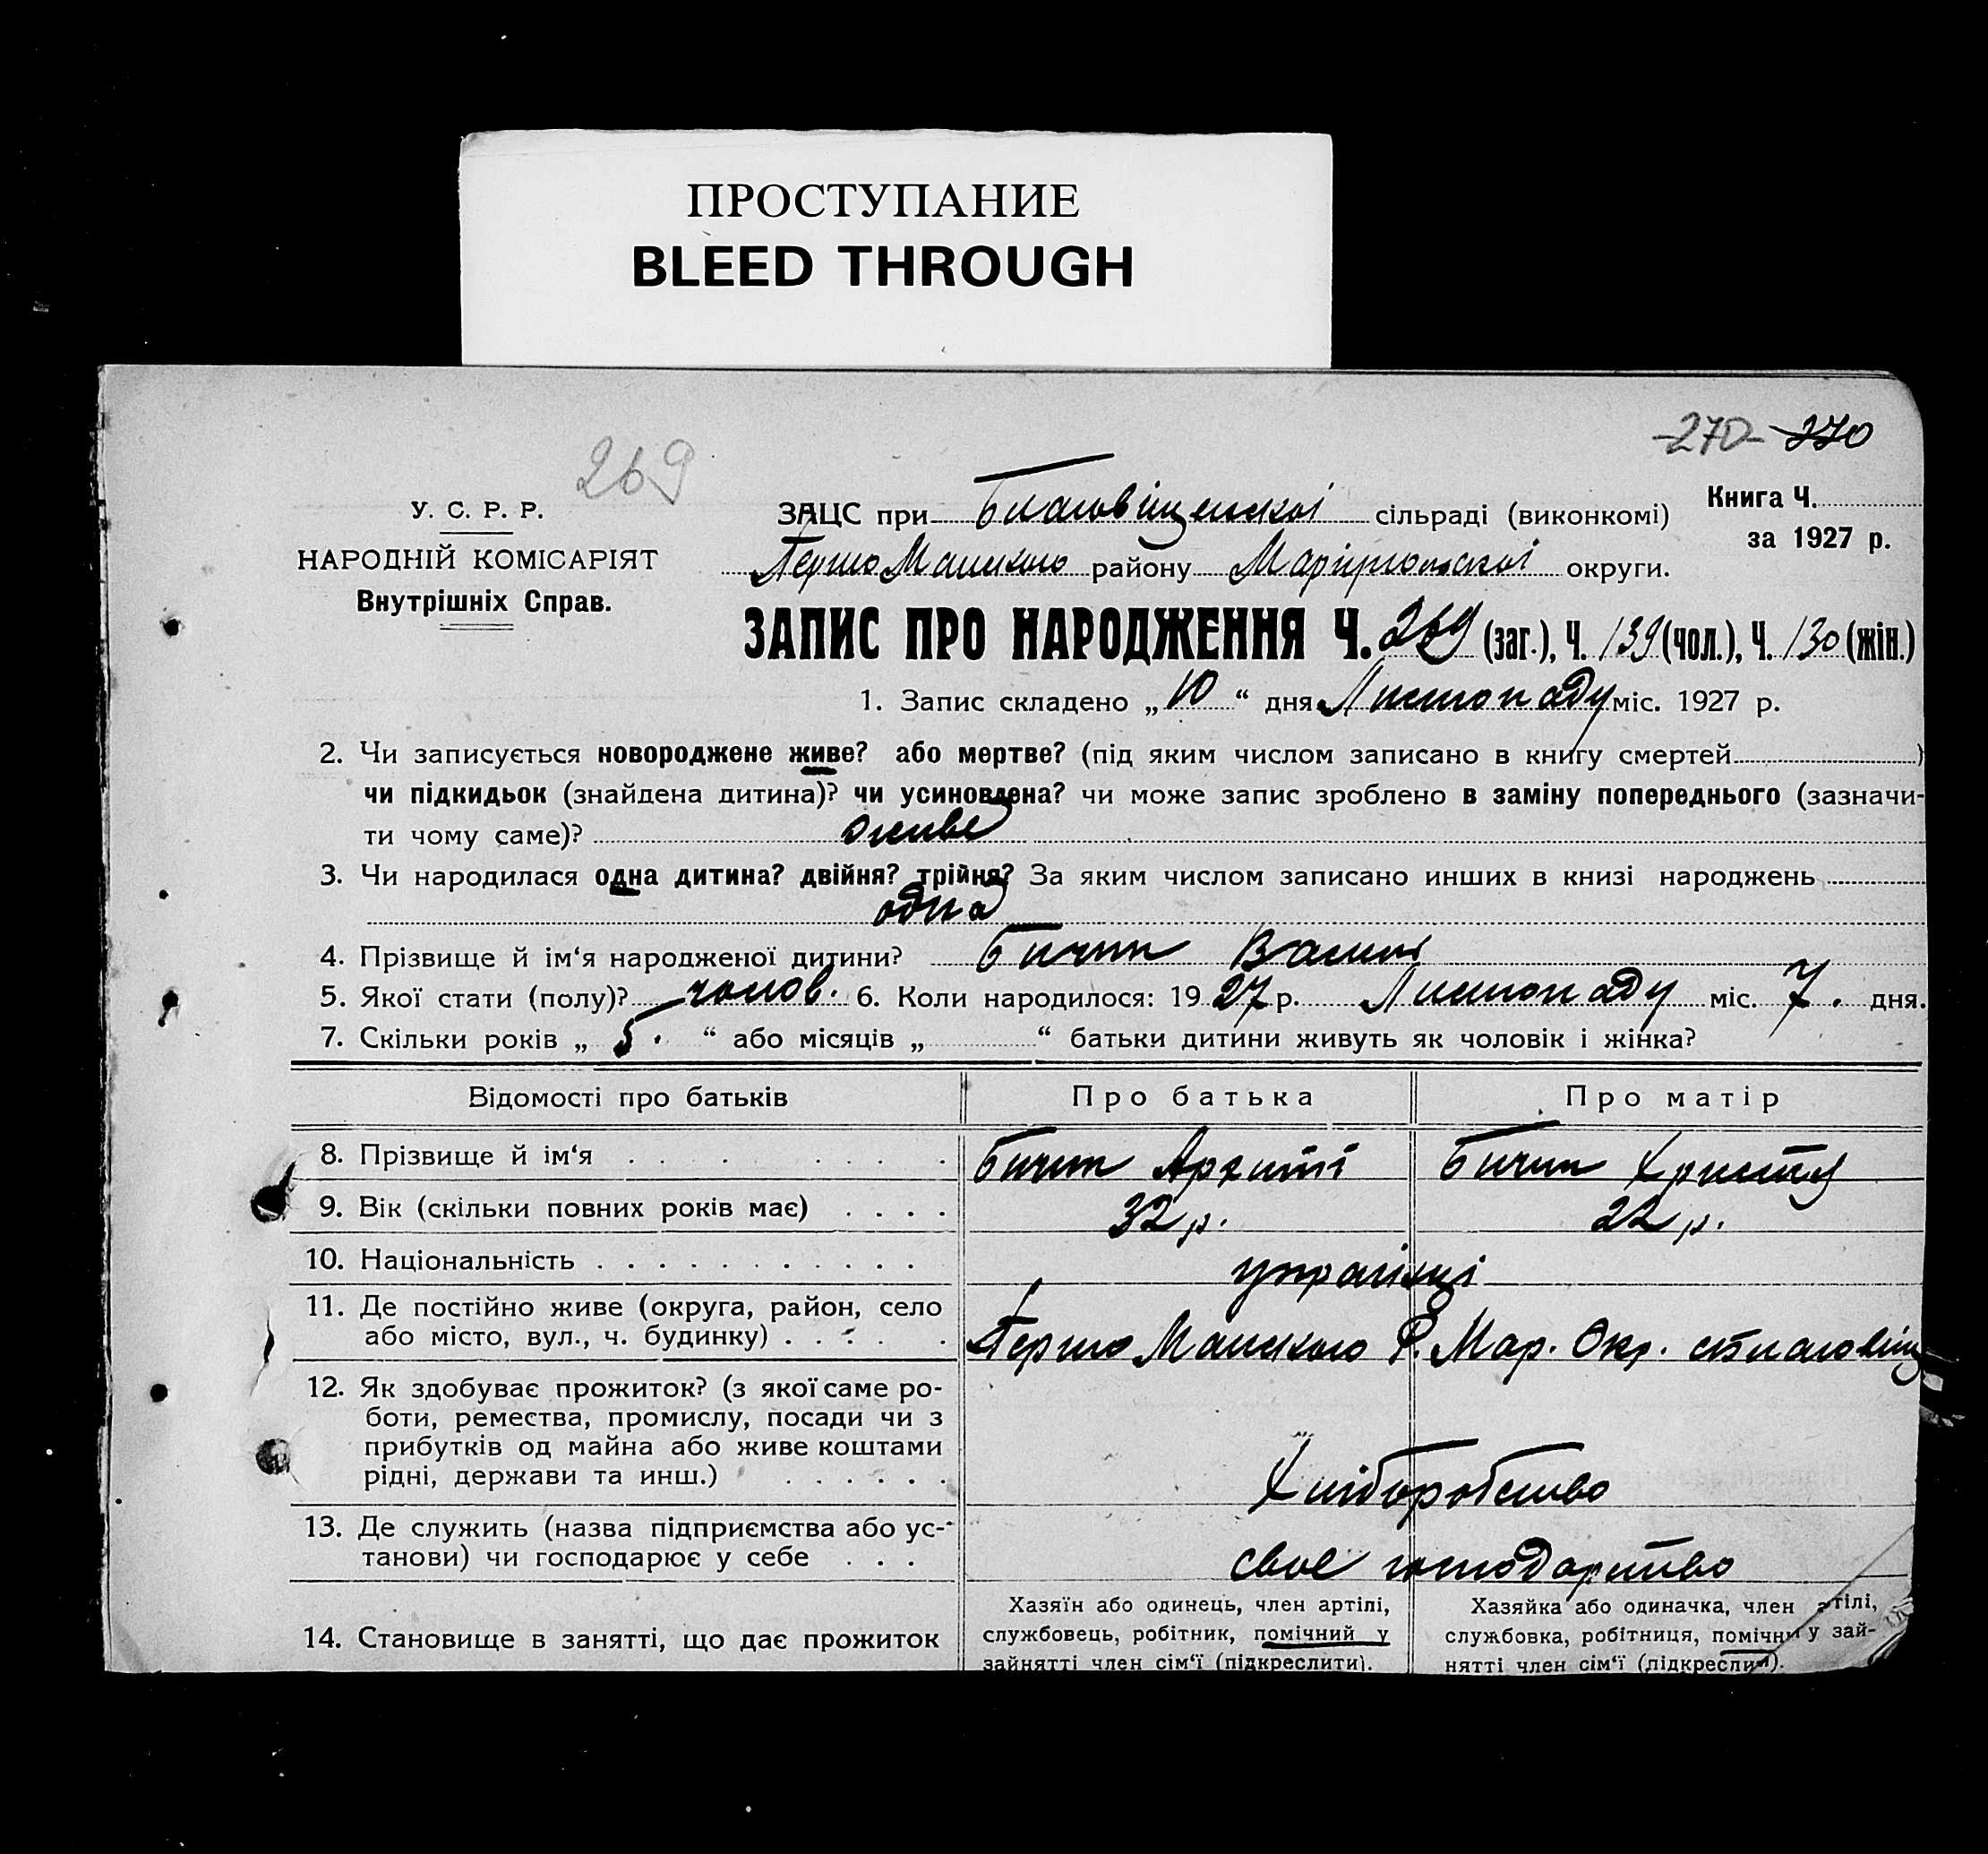 ПРОСТУПАНИЕ
BLEED THROUGH
-270- 270
269
У. С. Р. Р.
НАРОДНІЙ КОМІСАРІЯТ
Внутрішніх Справ.
ЗАЦС при Благовіщенської сільраді (виконкомі)
Книга Ч.
за 1927 р.
Першо Майського району Маріупольської округи.
ЗАПИС ПРО НАРОДЖЕННЯ Ч. 269 (заг.), Ч. 139 (чол.), Ч. 130 (жін.)
1. Запис складено „ 10 “ дня Листопаду міс. 1927 р.
2. Чи записується новороджене живе? або мертве? (під яким числом записано в книгу смертей )
чи підкидьок (знайдена дитина)? чи усиновлена? чи може запис зроблено в заміну попереднього (зазначи-
ти чому саме)? живе
3. Чи народилася одна дитина? двійня? трійня? За яким числом записано инших в книзі народжень
одна
4. Прізвище й ім‘я народженої дитини? Бичик
5. Якої стати (полу)? чолов. 6. Коли народилося: 19 27 р. Листопаду міс. 7. дня.
7. Скільки років „ 5. “ або місяців „ “ батьки дитини живуть як чоловік і жінка?
Відомості про батьків Про батька Про матір
8. Прізвище й ім‘я . . . . . . . . . Бичик Архип Бичик Христя
9. Вік (скільки повних років має) . . . . 32 р. 22 р.
10. Національність . . . . . . . . . . . українці
11. Де постійно живе (округа, район, село
або місто, вул., ч. будинку) . . . . . Першо Майського Р. Мар. Окр. с Благовіщ
12. Як здобуває прожиток? (з якої саме ро-
боти, ремества, промислу, посади чи з
прибутків од майна або живе коштами
рідні, держави та инш.) . . . . . .
Хліборобство
13. Де служить (назва підприємства або ус-
танови) чи господарює у себе . . .
своє господарство
14. Становище в занятті, що дає прожиток
Хазяїн або одинець, член артілі,
службовець, робітник, помічний у
зайнятті член сім‘ї (підкреслити).
Хазяйка або одиначка, член артілі,
службовка, робітниця, помічни у зай-
нятті член сім‘ї (підкреслити).